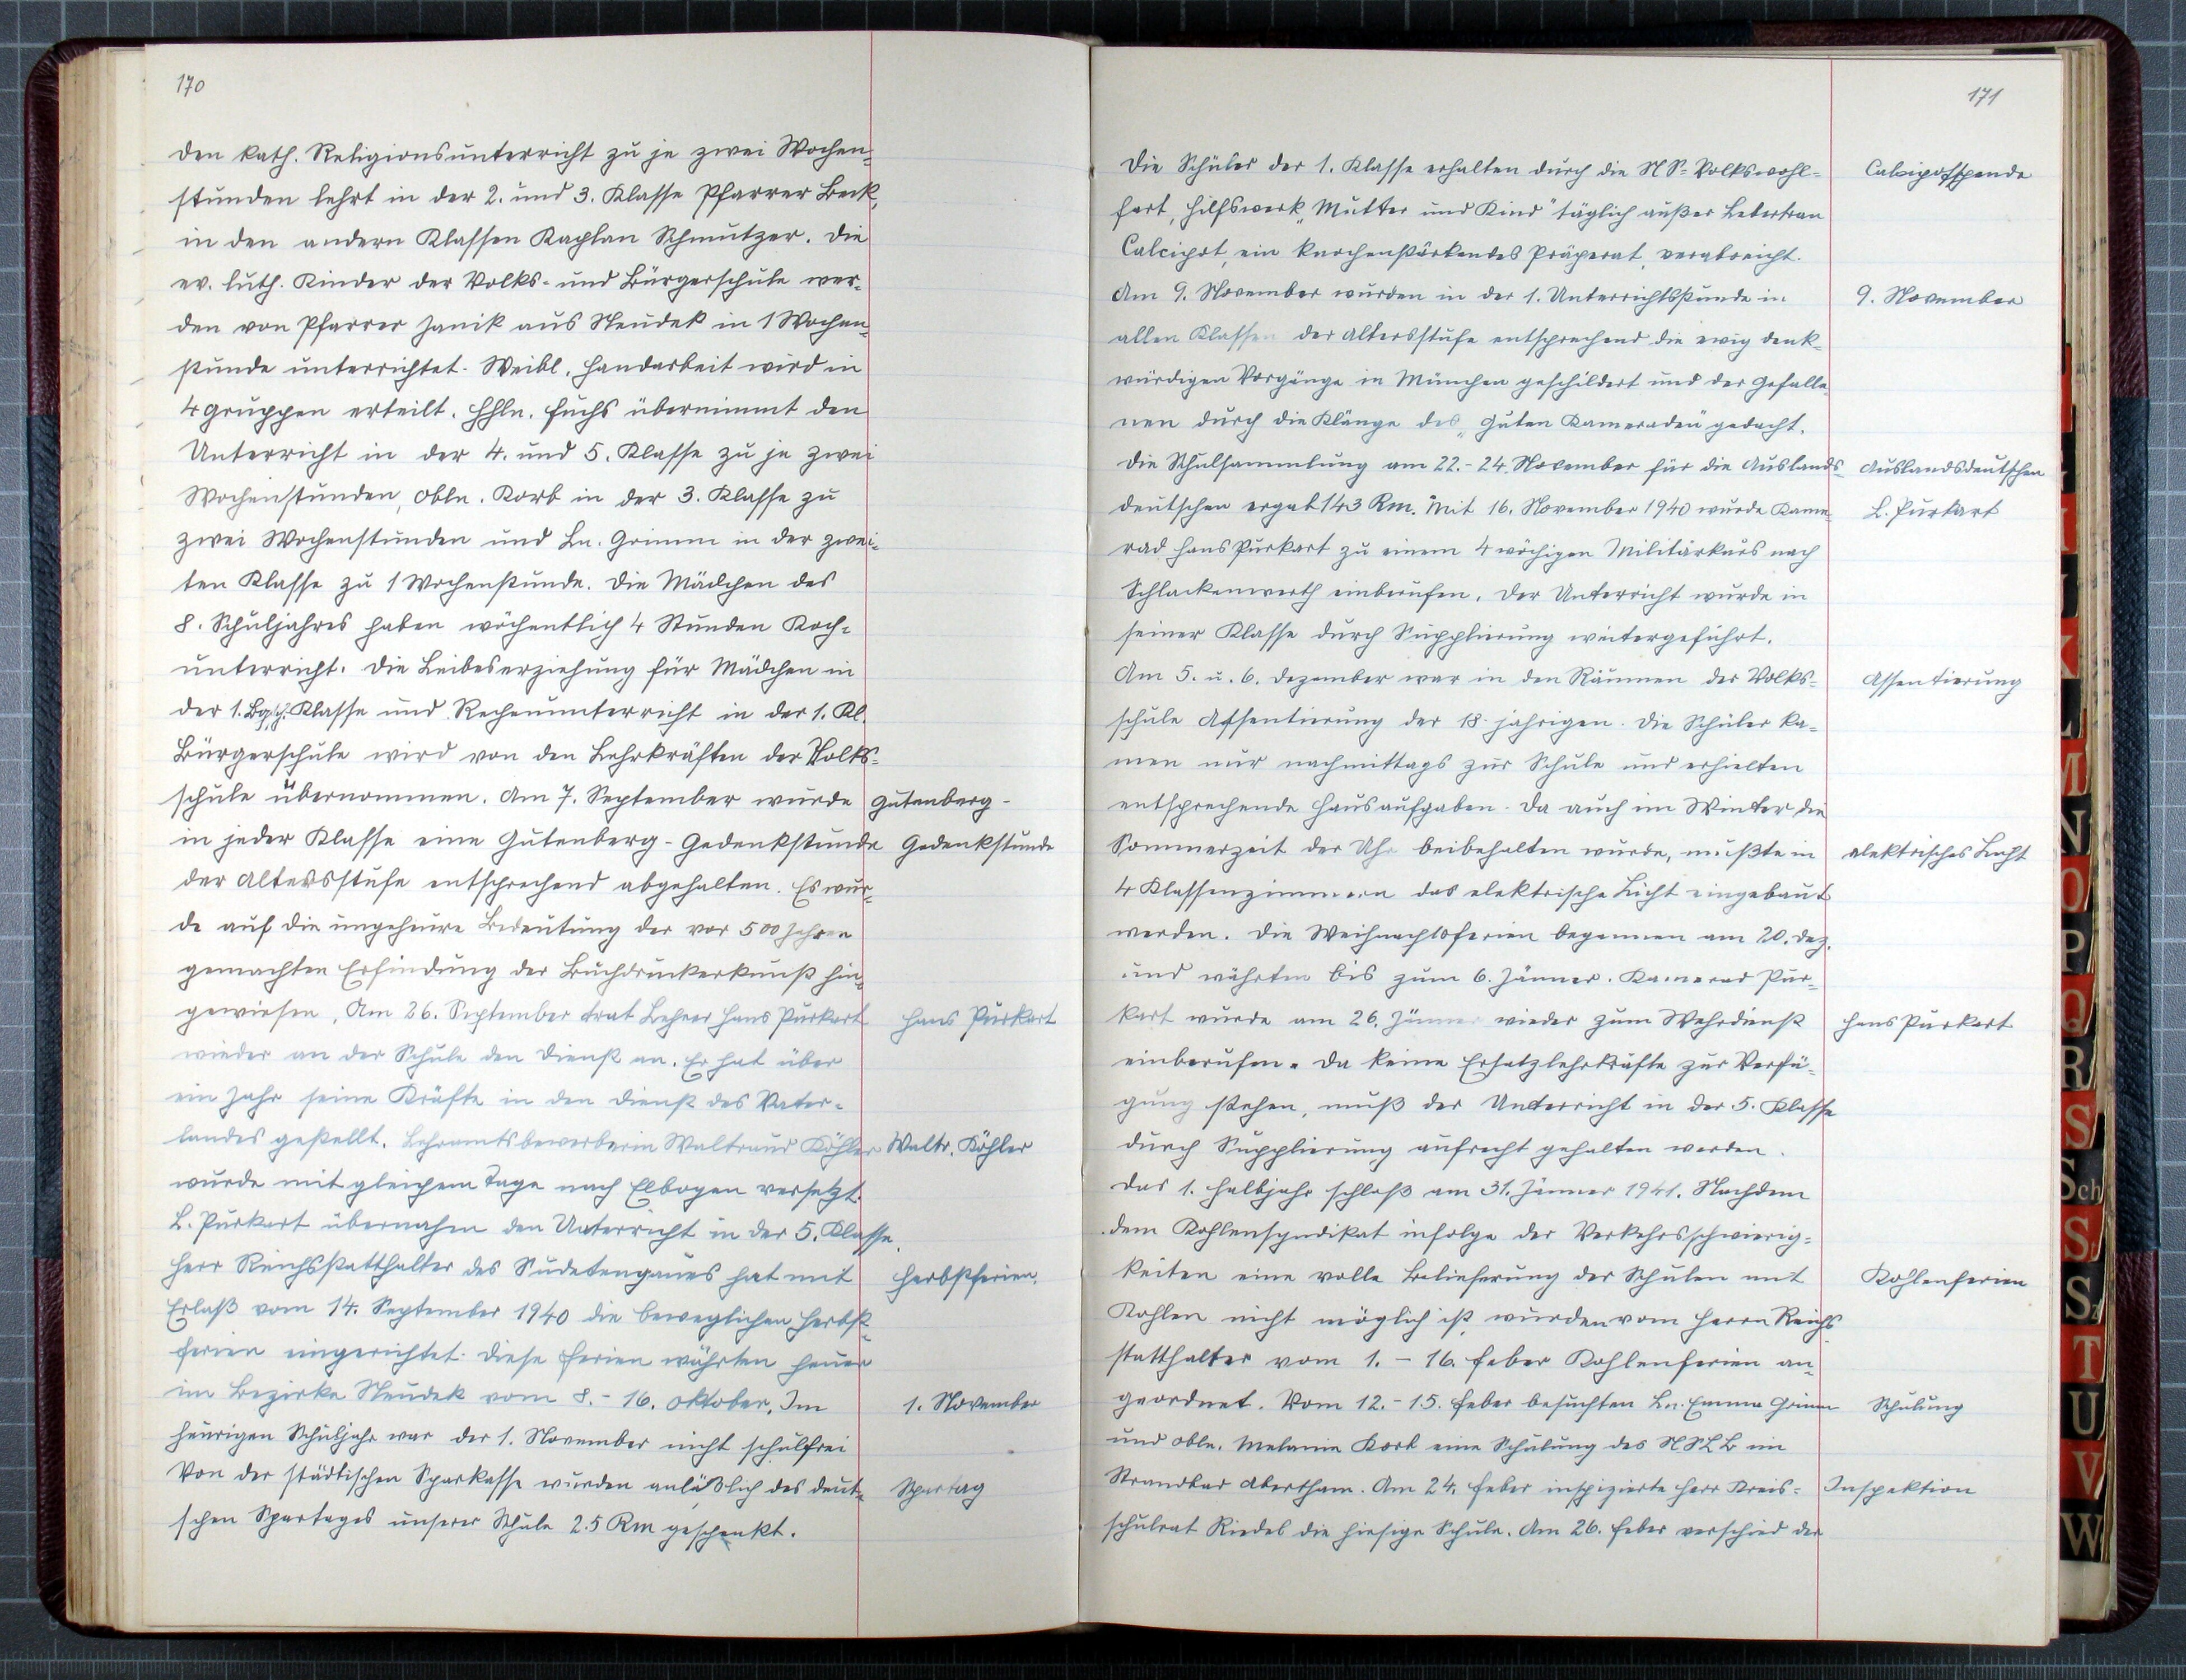 170
den kath. Religionsunterricht zu je zwei Wochen-
stunden lehrt in der 2. und 3. Klasse Pfarrer Beck,
in den andern Klassen Kaplan Schmutzer. Die
ev. luth. Kinder der Volks- und Bürgerschule wer-
den von Pfarrer Janik aus Neudek in 1 Wochen-
stunde unterrichtet. Weibl. Handarbeit wird in
4 Gruppen erteilt. Hhln. Fuchs übernimmt den
Unterricht in der 4. und 5. Klasse zu je zwei
Wochenstunden, Obln. Korb in der 3. Klasse zu
zwei Wochenstunden und Ln. Grimm in der zwei-
ten Klasse zu 1 Wochenstunde. Die Mädchen des
8. Schuljahres haben wöchentlich 4 Stunden Koch-
unterricht. Die Leibeserziehung für Mädchen in
der 1. Bgsch. Klasse und Rechenunterricht in der 1. Kl.
Bürgerschule wird von den Lehrkräften der Volks-
schule übernommen. Am 7. September wurde
Gutenberg-
in jeder Klasse eine Gutenberg-Gedenkstunde
Gedenkstunde
der Altersstufe entsprechend abgehalten. Es wur-
de auf die ungeheure Bedeutung der vor 500 Jahren
gemachten Erfindung der Buchdruckerkunst hin-
gewiesen. Am 26. September trat Lehrer Hans Purkart
Hans Purkart
wieder an der Schule den Dienst an. Er hat über
ein Jahr seine Kräfte in den Dienst des Vater-
landes gestellt. Lehramtsbewerberin Waltraud Köhler
Waltr. Köhler
wurde mit gleichem Tage nach Elbogen versetzt.
L. Purkart übernahm den Unterricht in der 5. Klasse.
Herr Reichsstatthalter des Sudetengaues hat mit
Herbstferien.
Erlaß vom 14. September 1940 die beweglichen Herbst-
ferien eingerichtet. Diese Ferien währten heuer
im Bezirke Neudek vom 8.-16. Oktober. Im
1. November
heurigen Schuljahr war der 1. November nicht schulfrei
Von der städtischen Sparkasse wurden anläßlich des deut-
Spartag
schen Spartages unserer Schule 25 Rm geschenkt.
171
Die Schüler der 1. Klasse erhalten durch die NS-Volkswohl-
Calcipotspende
fart, Hilfswerk „Mutter und Kind" täglich außer Lebertran
Calcipot, ein knochenstärkendes Präperat, verabreicht.
Am 9. November wurden in der 1. Unterrichtsstunde in
9. November
allen Klassen der Altersstufe entsprechend die ewig denk-
würdigen Vorgänge in München geschildert und der Gefalle-
nen durch die Klänge des „Guten Kameraden" gedacht.
Die Schulsammlung am 22.-24. November für die Auslands-
Auslandsdeutschen
deutschen ergab 143 Rm. Mit 16. November 1940 wurde Kame-
L. Purkart
rad Hans Purkart zu einem 4 wöchigen Militärkurs nach
Schlackenwerth einberufen. Der Unterricht wurde in
seiner Klasse durch Supplierung weitergeführt.
Am 5. u. 6. Dezember war in den Räumen der Volks-
Assentierung
schule Assentierung der 18-jährigen. Die Schüler ka-
men nur nachmittags zur Schule und erhielten
entsprechende Hausaufgaben. Da auch im Winter die
Sommerzeit der Uhr beibehalten wurde, mußte in
elektrisches Licht
4 Klassenzimmern das elektrische Licht eingebaut
werden. Die Weihnachtsferien begannen am 20. Dez.
und währten bis zum 6. Jänner. Kamerad Pur-
kart wurde am 26. Jänner wieder zum Wehrdienst
Hans Purkart
einberufen. Da keine Ersatzlehrkräfte zur Verfü-
gung stehen, muß der Unterricht in der 5. Klasse
durch Supplierung aufrecht gehalten werden.
Das 1. Halbjahr schloß am 31. Jänner 1941. Nachdem
dem Kohlensyndikat infolge der Verkehrsschwierig-
keiten eine volle Belieferung der Schulen mit
Kohlenferien
Kohlen nicht möglich ist, wurden vom Herrn Reichs-
statthalter vom 1.-16. Feber Kohlenferien an-
geordnet. Vom 12.-15. Feber besuchten Ln. Emma Grimm
Schulung
und Obln. Melanie Korb eine Schulung des NSLB im
Strandbad Abertham. Am 24. Feber inspizierte Herr Kreis-
Inspektion
schulrat Riedel die hiesige Schule. Am 26. Feber verschied der
M
N
O
P
Q
R
S
Sch
St
Sz
T
U
V
W